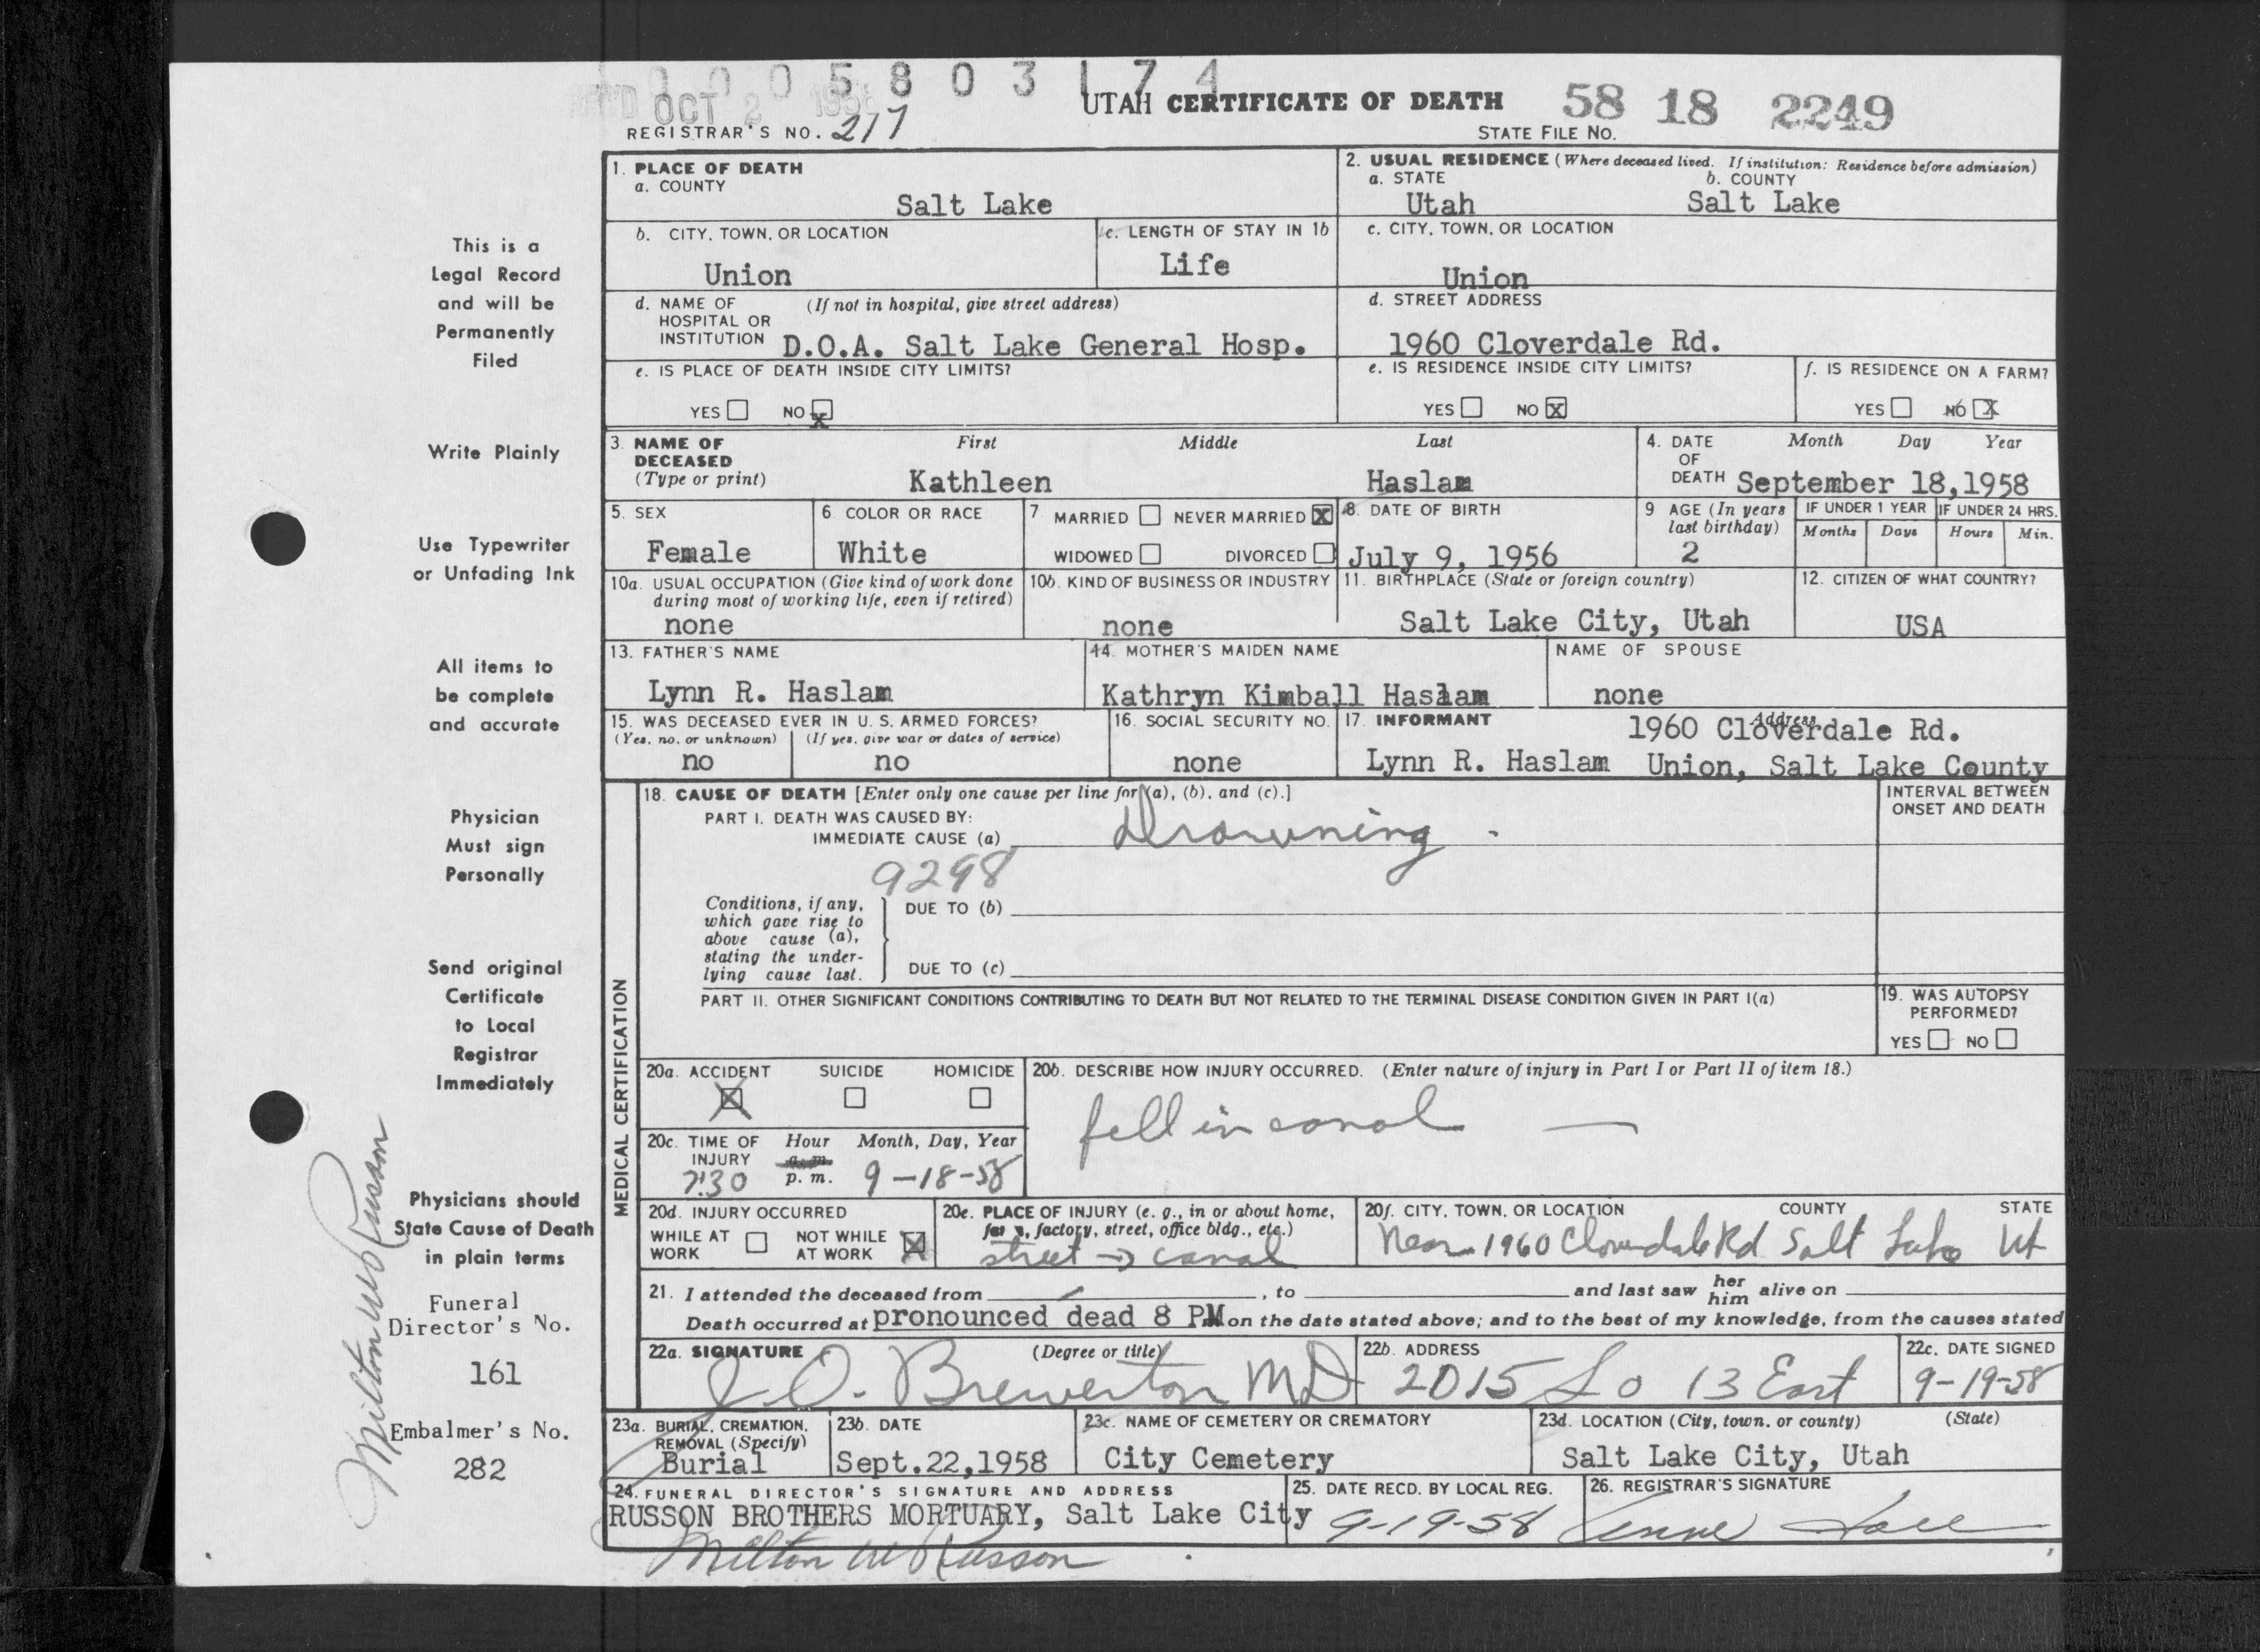 1 0 0 5 8 0 3 1 7 4
REC'D OCT 2 1958
UTAH CERTIFICATE OF DEATH
58 18 2249
REGISTRAR'S NO. 217
STATE FILE NO.
1. PLACE OF DEATH
a. COUNTY
Salt Lake
2. USUAL RESIDENCE (Where deceased lived. If institution: Residence before admission)
a. STATE b. COUNTY
Utah Salt Lake
b. CITY, TOWN, OR LOCATION
Union
c. LENGTH OF STAY IN 1b
Life
c. CITY, TOWN, OR LOCATION
Union
d. NAME OF (If not in hospital, give street address)
HOSPITAL OR
INSTITUTION D.O.A. Salt Lake General Hosp.
d. STREET ADDRESS
1960 Cloverdale Rd.
e. IS PLACE OF DEATH INSIDE CITY LIMITS?
YES NO X
e. IS RESIDENCE INSIDE CITY LIMITS?
YES NO X
f. IS RESIDENCE ON A FARM?
YES NO X
3. NAME OF DECEASED
(Type or print)
First Middle Last
Kathleen Haslam
4. DATE OF DEATH
Month Day Year
September 18,1958
5. SEX
Female
6. COLOR OR RACE
White
7 MARRIED NEVER MARRIED X
WIDOWED DIVORCED
8. DATE OF BIRTH
July 9, 1956
9 AGE (In years last birthday)
2
IF UNDER 1 YEAR
Months Days
IF UNDER 24 HRS.
Hours Min.
10a. USUAL OCCUPATION (Give kind of work done
during most of working life, even if retired)
none
10b. KIND OF BUSINESS OR INDUSTRY
none
11. BIRTHPLACE (State or foreign country)
Salt Lake City, Utah
12. CITIZEN OF WHAT COUNTRY?
USA
13. FATHER'S NAME
Lynn R. Haslam
14. MOTHER'S MAIDEN NAME
Kathryn Kimball Haslam
NAME OF SPOUSE
none
15. WAS DECEASED EVER IN U. S. ARMED FORCES?
(Yes, no, or unknown) (If yes, give war or dates of service)
no no
16. SOCIAL SECURITY NO.
none
17. INFORMANT Address
1960 Cloverdale Rd.
Lynn R. Haslam Union, Salt Lake County
MEDICAL CERTIFICATION
18. CAUSE OF DEATH [Enter only one cause per line for (a), (b), and (c).]
PART I. DEATH WAS CAUSED BY:
IMMEDIATE CAUSE (a) Drowning
INTERVAL BETWEEN
ONSET AND DEATH
9298
Conditions, if any,
which gave rise to
above cause (a),
stating the under-
lying cause last.
DUE TO (b)
DUE TO (c)
PART II. OTHER SIGNIFICANT CONDITIONS CONTRIBUTING TO DEATH BUT NOT RELATED TO THE TERMINAL DISEASE CONDITION GIVEN IN PART I(a)
19. WAS AUTOPSY
PERFORMED?
YES NO
20a. ACCIDENT SUICIDE HOMICIDE
X
20b. DESCRIBE HOW INJURY OCCURRED. (Enter nature of injury in Part I or Part II of item 18.)
fell in canal —
20c. TIME OF INJURY Hour Month, Day, Year
a. m.
7:30 p. m. 9-18-58
20d. INJURY OCCURRED
WHILE AT WORK NOT WHILE AT WORK X
20e. PLACE OF INJURY (e. g., in or about home,
farm, factory, street, office bldg., etc.)
street → canal
20f. CITY, TOWN, OR LOCATION COUNTY STATE
Near 1960 Cloverdale Rd Salt Lake Ut
21. I attended the deceased from , to and last saw her him alive on
Death occurred at pronounced dead 8 PM on the date stated above; and to the best of my knowledge, from the causes stated
22a. SIGNATURE (Degree or title)
J. O. Brewerton MD
22b. ADDRESS
2015 So 13 East
22c. DATE SIGNED
9-19-58
23a. BURIAL, CREMATION,
REMOVAL (Specify)
Burial
23b. DATE
Sept.22,1958
23c. NAME OF CEMETERY OR CREMATORY
City Cemetery
23d. LOCATION (City, town, or county) (State)
Salt Lake City, Utah
24. FUNERAL DIRECTOR'S SIGNATURE AND ADDRESS
RUSSON BROTHERS MORTUARY, Salt Lake City
Milton W Russon
25. DATE RECD. BY LOCAL REG.
9-19-58
26. REGISTRAR'S SIGNATURE
This is a
Legal Record
and will be
Permanently
Filed
Write Plainly
Use Typewriter
or Unfading Ink
All items to
be complete
and accurate
Physician
Must sign
Personally
Send original
Certificate
to Local
Registrar
Immediately
Physicians should
State Cause of Death
in plain terms
Funeral
Director's No.
161
Embalmer's No.
282
Milton W Russon